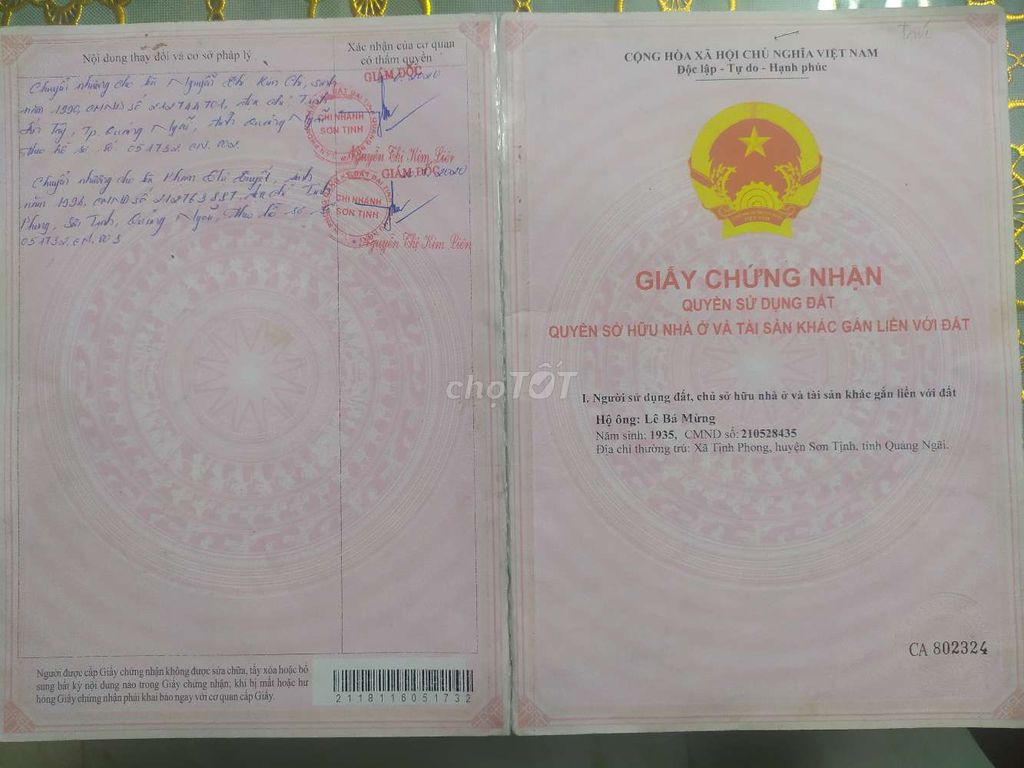 Nội dung thay đổi và cơ sở pháp lý
Xác nhận của cơ quan
có thẩm quyền
Chuyển nhượng cho bà Nguyễn Thị Kim Chi, sinh
năm 1990, CMND số địa chỉ: Tịnh
Ấn Tây, Tp. Quảng Ngãi, tỉnh Quảng Ngãi
theo hồ sơ số 051732. CN. 002
GIÁM ĐỐC
CHI NHÁNH
SƠN TỊNH
Nguyễn Thị Kim Liên
Chuyển nhượng cho bà Phạm Thị Tuyết, sinh
năm 1992, CMND số địa chỉ: Tịnh
Phong, Sơn Tịnh, Quảng Ngãi, theo hồ sơ số
051732. CN. 003
GIÁM ĐỐC
CHI NHÁNH
SƠN TỊNH
Nguyễn Thị Kim Liên
Người được cấp Giấy chứng nhận không được sửa chữa, tẩy xóa hoặc bổ
sung bất kỳ nội dung nào trong Giấy chứng nhận; khi bị mất hoặc hư
hỏng Giấy chứng nhận phải khai báo ngay với cơ quan cấp Giấy.
2118116051732
CỘNG HÒA XÃ HỘI CHỦ NGHĨA VIỆT NAM
Độc lập - Tự do - Hạnh phúc
GIẤY CHỨNG NHẬN
QUYỀN SỬ DỤNG ĐẤT
QUYỀN SỞ HỮU NHÀ Ở VÀ TÀI SẢN KHÁC GẮN LIỀN VỚI ĐẤT
chợTỐT
I. Người sử dụng đất, chủ sở hữu nhà ở và tài sản khác gắn liền với đất
Hộ ông: Lê Bá Mừng
Năm sinh: 1935, CMND số: 210528435
Địa chỉ thường trú: Xã Tịnh Phong, huyện Sơn Tịnh, tỉnh Quảng Ngãi.
CA 802324